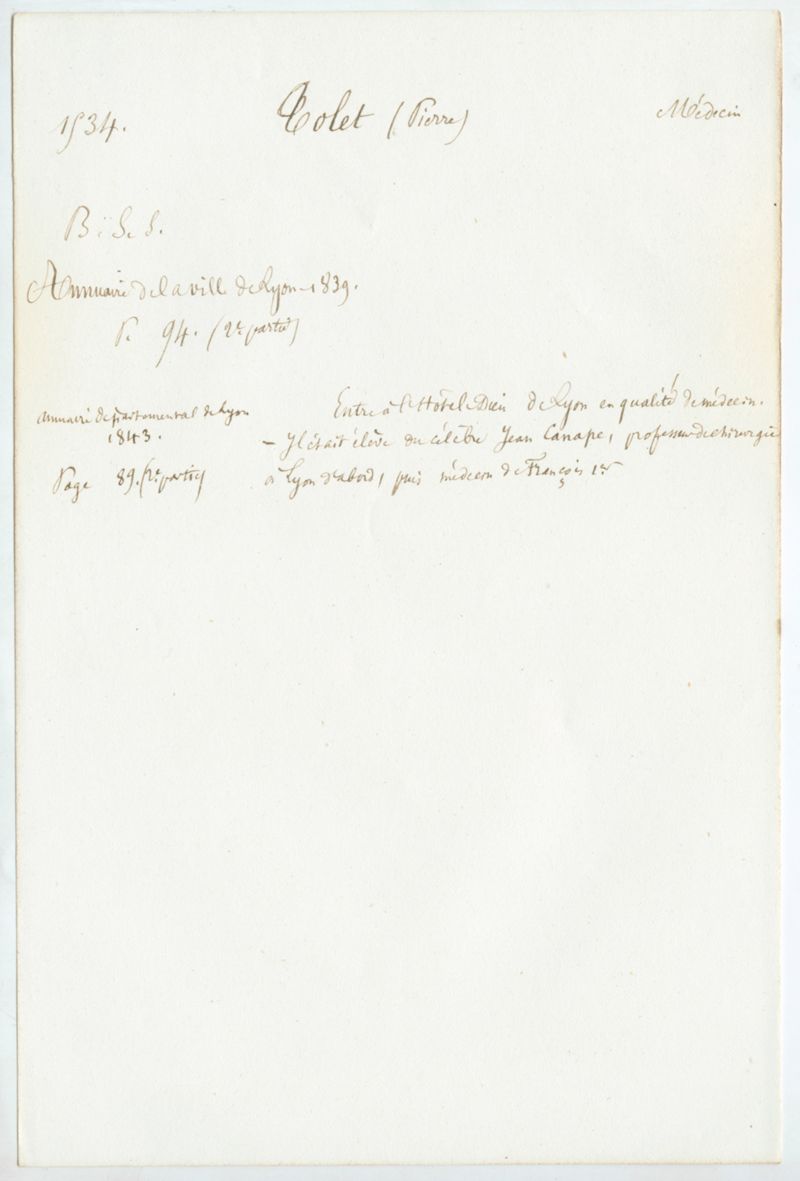 1534. Tolet (Pierre) Médecin
Annuaire de la ville de Lyon - 1839.
P. 94. (2e partie)
Annuaire départemental de Lyon
1843.
Page 89. (2e partie)
Entre à l'Hôtel-Dieu de Lyon en qualité de médecin.
- Il était élève du célèbre Jean Canape, professeur de chirurgie
à Lyon d'abord, puis médecin de François 1er